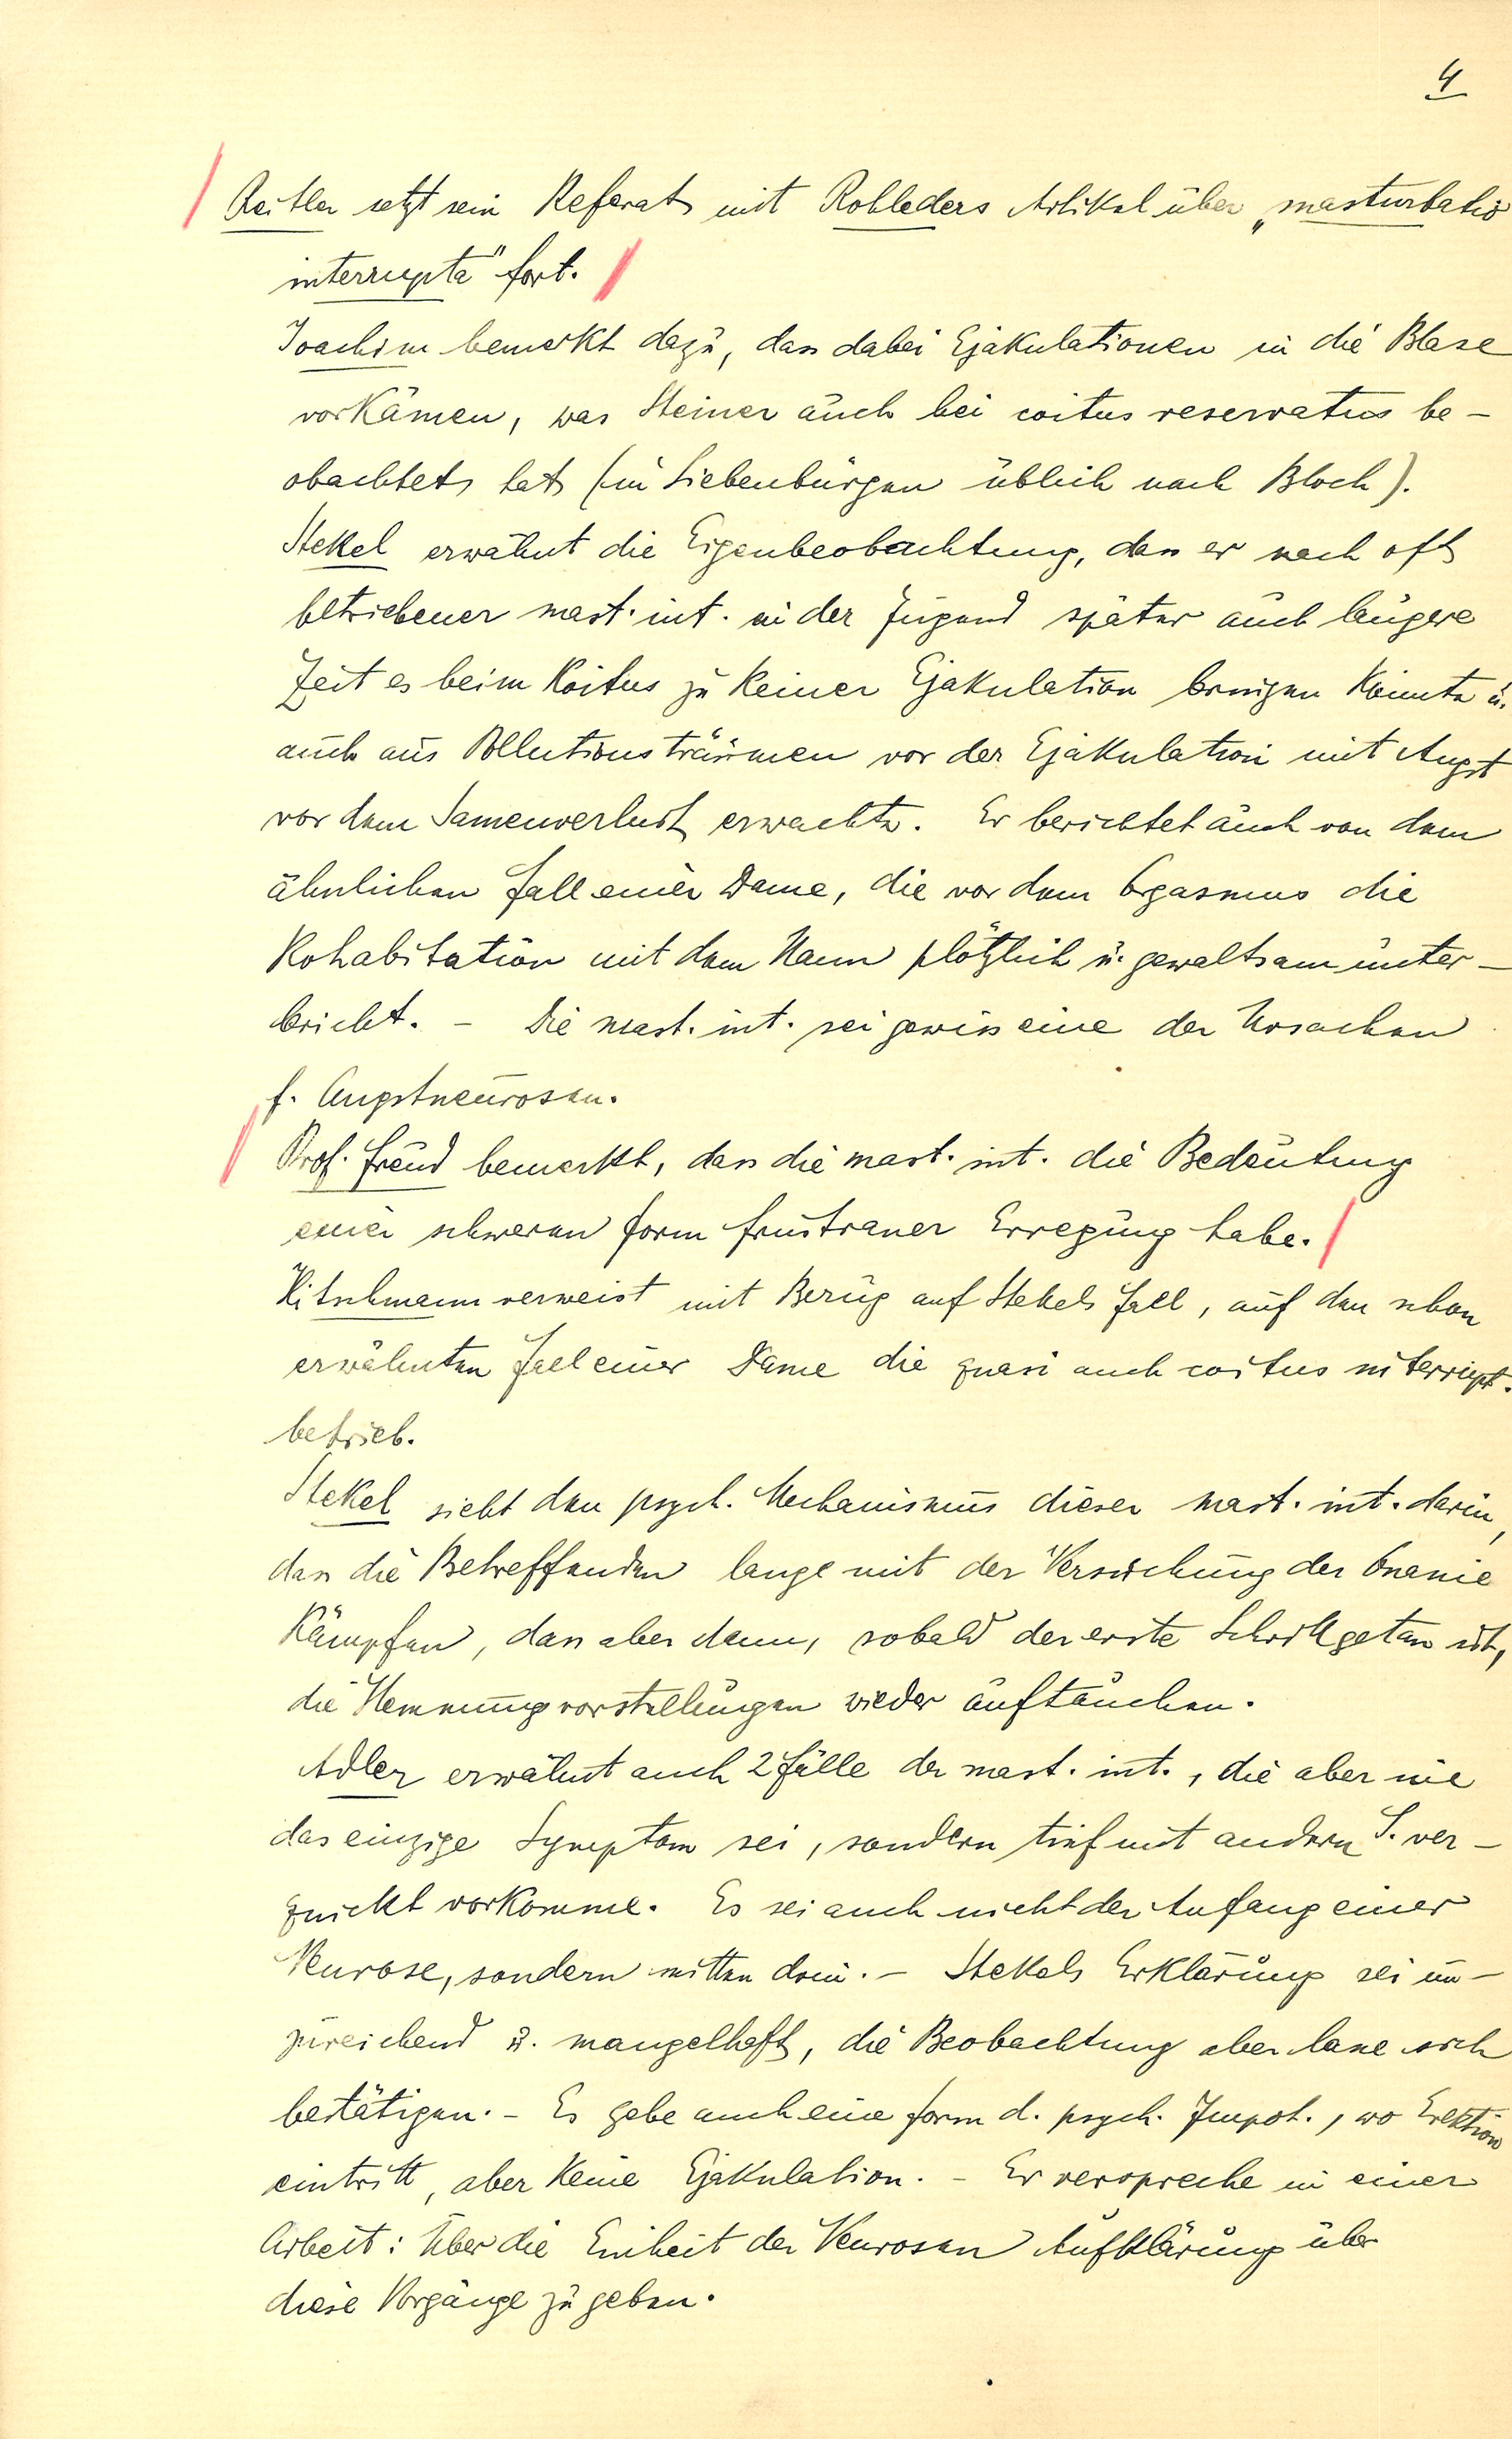 4
Reitler setzt sein Referat mit Rohleders Artikel über „masturbatio
interrupta" fort.
Joachim bemerkt dazu, dass dabei Ejakulationen in die Blase
vorkämen, was Steiner auch bei coitus reservatus be-
obachtet hat (in Siebenbürgen üblich nach Bloch).
Stekel erwähnt die Eigenbeobachtung, dass er nach oft
betriebener mast. int. in der Jugend später auch längere
Zeit es beim Koitus zu keiner Ejakulation bringen konnte u.
auch aus Pollutionsträumen vor der Ejakulation mit Angst
vor dem Samenverlust erwachte. Er berichtet auch von dem
ähnlichen Fall einer Dame, die vor dem Orgasmus die
Kohabitation mit dem Mann plötzlich u. gewaltsam unter-
bricht. - Die mast. int. sei gewiss eine der Ursachen
f. Angstneurosen.
Prof. Freud bemerkt, dass die mast. int. die Bedeutung
einer schweren Form frustraner Erregung habe.
Hitschmann verweist mit Bezug auf Stekels Fall, auf den schon
erwähnten Fall einer Dame die quasi auch coitus interrupt.
betrieb.
Stekel sieht den psych. Mechanismus dieser mast. int. darin,
dass die Betreffenden lange mit der Versuchung der Onanie
kämpfen, dass aber dann, sobald der erste Schritt getan ist,
die Hemmungvorstellungen wieder auftauchen.
Adler erwähnt auch 2 Fälle der mast. int., die aber nie
das einzige Symptom sei, sondern tief mit andern S. ver-
quickt vorkomme. Es sei auch nicht der Anfang einer
Neurose, sondern mitten drin. - Stekels Erklärung sei un-
zureichend u. mangelhaft, die Beobachtung aber lasse sich
bestätigen. - Es gebe auch eine Form d. psych. Impot., wo Erektion
eintritt, aber keine Ejakulation. - Er verspreche in einer
Arbeit: Über die Einheit der Neurosen Aufklärung über
diese Vorgänge zu geben.